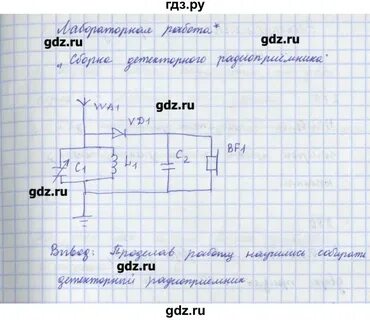 гдз.ру
Лабораторная работа*
gdz.ru gdz.ru
„Сборка детекторного радиоприёмника"
gdz.ru
WA1 gdz.ru
VD1
gdz.ru gdz.ru
C1 L1 C2 BF1
gdz.ru gdz.ru
gdz.ru
gdz.ru
Вывод: Проделав работу научились собирать
детекторный радиоприёмник
gdz.ru gdz.ru